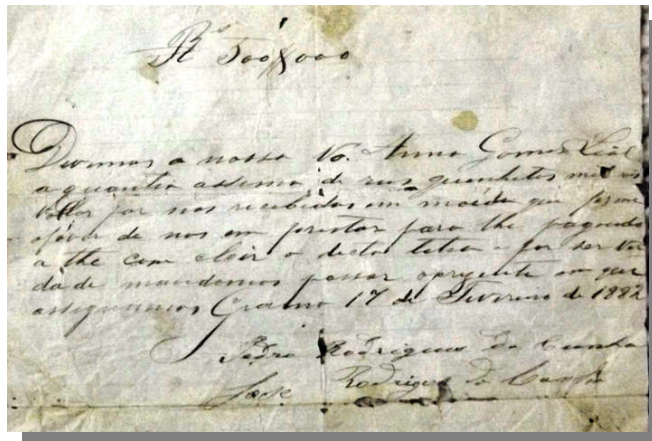 Rs 500$000
Devemos a nossa Vó. Anna Gomes Leal
a quantia assema de reis quenhetos mil reis
por nos recebidos em moéda que
de nos em prestar para lhe
a lhe com o desta letra e por ser ver
da de mandemos passar o prezente em que
assignamos Gramo 17 de Fevreiro de 1882
Pedro Rodrigues da Cunha
José Rodrigues da Cunha